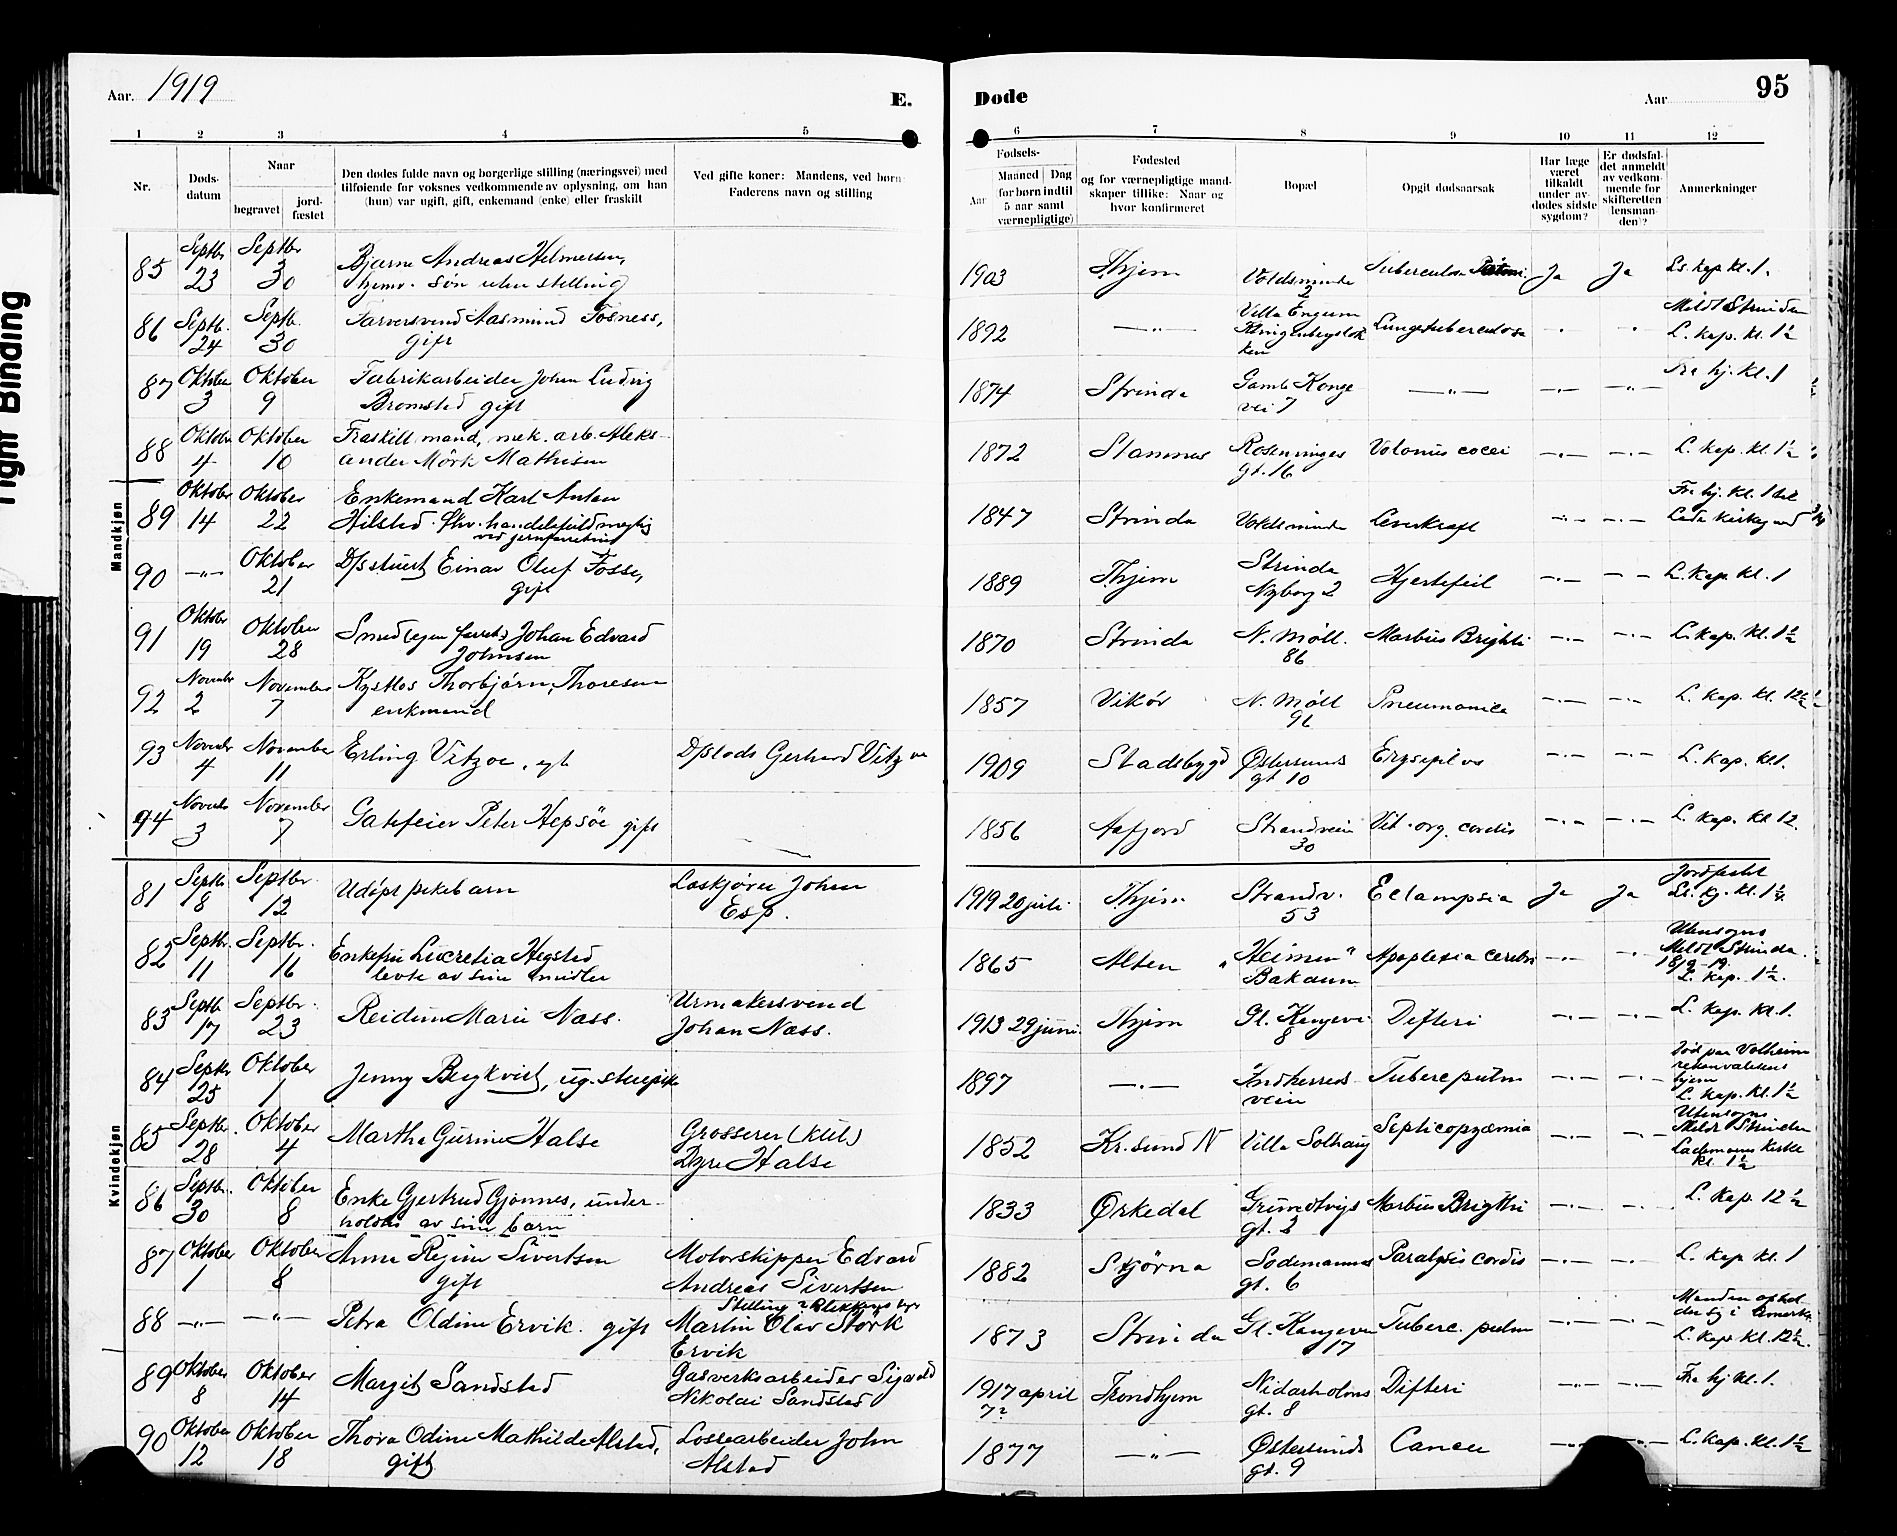 Tight Binding
Aar. 1919
E.
Døde
Aar
95
1 2 3 4 5 6 7 8 9 10 11 12
Nr.
Døds-
datum
Naar
begravet
jord-
fæstet
Den dødes fulde navn og borgerlige stilling (næringsvei) med
tilføiende for voksnes vedkommende av oplysning, om han
(hun) var ugift, gift, enkemand (enke) eller fraskilt
Ved gifte koner: Mandens, ved børn
Faderens navn og stilling
Fødsels-
Aar
Maaned Dag
for børn indtil
5 aar samt
værnepligtige)
Fødested
og for værnepligtige mand-
skaper tillike: Naar og
hvor konfirmeret
Bopæl
Opgit dødsaarsak
Har læge
været
tilkaldt
under av-
dødes sidste
sygdom?
Er dødsfal-
det anmeldt
av vedkom-
mende for
skifteretten
lensman-
den)?
Anmerkninger
Mandkjøn
85 Septbr. 23 Septbr 30 Bjarne Andreas Helmersen,
hjemv. søn uten stilling
1903 Thjem Voldsminde 2 Tuberculose Ja Ja L. kap kl. 1.
86 Septb. 24 Septb. 30 Farversvend Aasmund Fosness,
gift
1892 —"— Villa Engum Lungetuberculose Meldt Strinden
L. kap. kl. 1½
87 Oktober 3 Oktober 9 Fabrikarbeider Johan Ludvig
Bromsted gift
1874 Strinda Gamle Konge
vei 7 —"— —"— —"— Fra hj. kl. 1
88 Oktober 4 Oktober 10 Fraskilt mand, mek. arb. Aleks-
ander Mörk Mathisen
1872 Stamnes Rosenvinges
gt. 16 —"— —"— L. kap. kl. 1½
89 Oktober 14 Oktober 22 Enkemand Karl Anton
Hilstad. fhv. handelsfuldmegtig
1847 Strinda Voldsminde Leverkræft —"— —"— Fra hj. kl. 1 til
Lade kirkegaard
90 —"— Oktober 21 D/sstuert Einar Oluf Fosse,
gift
1889 Thjem Strinda
Nyborg 2 Hjertefeil —"— —"— L. kap. kl. 1
91 Oktober 19 Oktober 28 Smed (egen forretn.) Johan Edvard
Johnsen
1870 Strinda N. Möll.
86 Morbus Brightii —"— —"— L. kap. kl. 1½
92 November 2 November 7 Kystlos Thorbjörn Thoresen
enkmand
1857 Vikör N. Möll
96 Pneumonica —"— —"— L. kap. kl. 12½
93 November 4 November 11 Erling Vitzoe, egb D/slods Gerhard Vitzoe
1909 Stadsbygd Østersunds
gt 10 Erysipilas —"— —"— L. kap. kl. 1.
94 November 3 November 7 Gatefeier Peter Hepsöe gift
1856 Aafjord Strandveien
30 Vit. org. cordis —"— —"— L. kap. kl 12.
Kvindekjøn
81 Septb. 8 Septbr. 12 Udöpt pikebarn Loskjörer Johan
Esp.
1919 20 juli Thjem Strandv.
53 Eclampsia Ja Ja Jordfestet
82 Septbr. 11 Septbr. 16 Enkefru Lucretia Hegstad
levte av sine midler
1865 Alten "Heimen"
Bakaunn Apoplexia cerebri —"— —"— Utensogns
Meldt Strinda
18/9-19.
L. kap. 1½.
83 Septb 17 Septbr. 23 Reidun Marie Næss. Urmakersvend
Johan Næss.
1913 29 juni. Thjem Gl. Kongevei
8 Difteri —"— —"— L. kap. kl. 1.
84 Septbr 25 Oktober 1 Jenny Bergkvist, ug. stuepike
1897 —"— Indherreds-
veien Tuberc pulm —"— —"— Død paa
rekonvalesent
hjem
L. kap. kl. 1½
85 Septbr. 28 Oktober 4 Martha Gurine Halse Grosserer (Kbh)
Dyre Halse
1852 Kr.sund N Villa Solhaug Septicopyæmia —"— —"— Utensogns
Meldt Strinden
Lademoens kirke
kl. 1½
86 Septbr. 30 Oktober 8 Enke Gjertrud Gjönnes, under-
holdes av sine barn
1833 Ørkedal Grundtvigs
gt. 2 Morbus Brigthi —"— —"— L. kap. 12½
87 Oktober 1 Oktober 8 Anna Regine Sivertsen
gift Motorskipper Edvard
Andreas Sivertsen
1882 Skjörna Sodemanns
gt. 6 Paralysis cordis —"— —"— L. kap kl. 1
88 —"— —"— Petra Oldine Ervik. gift Martin Olav Störk
Ervik
1873 Strinda Gl. Kongevei
17 Tuberc. pulm —"— —"— Manden ophol-
der sig i Amerka,
L. kap kl. 12½.
89 Oktober 8 Oktober 14 Margit Sandstad Gasverksarbeider Sigvald
Nikolai Sandstad
1917 april Trondhjem Nidarholms
gt. 8 Difteri —"— —"— Fra hj kl. 1.
90 Oktober 12 Oktober 18 Thora Odine Mathilde Alstad,
gift Lossearbeider John
Alstad
1877 —"— Østersunds
gt. 9 Cancer —"— —"— L. kap. kl. 1½